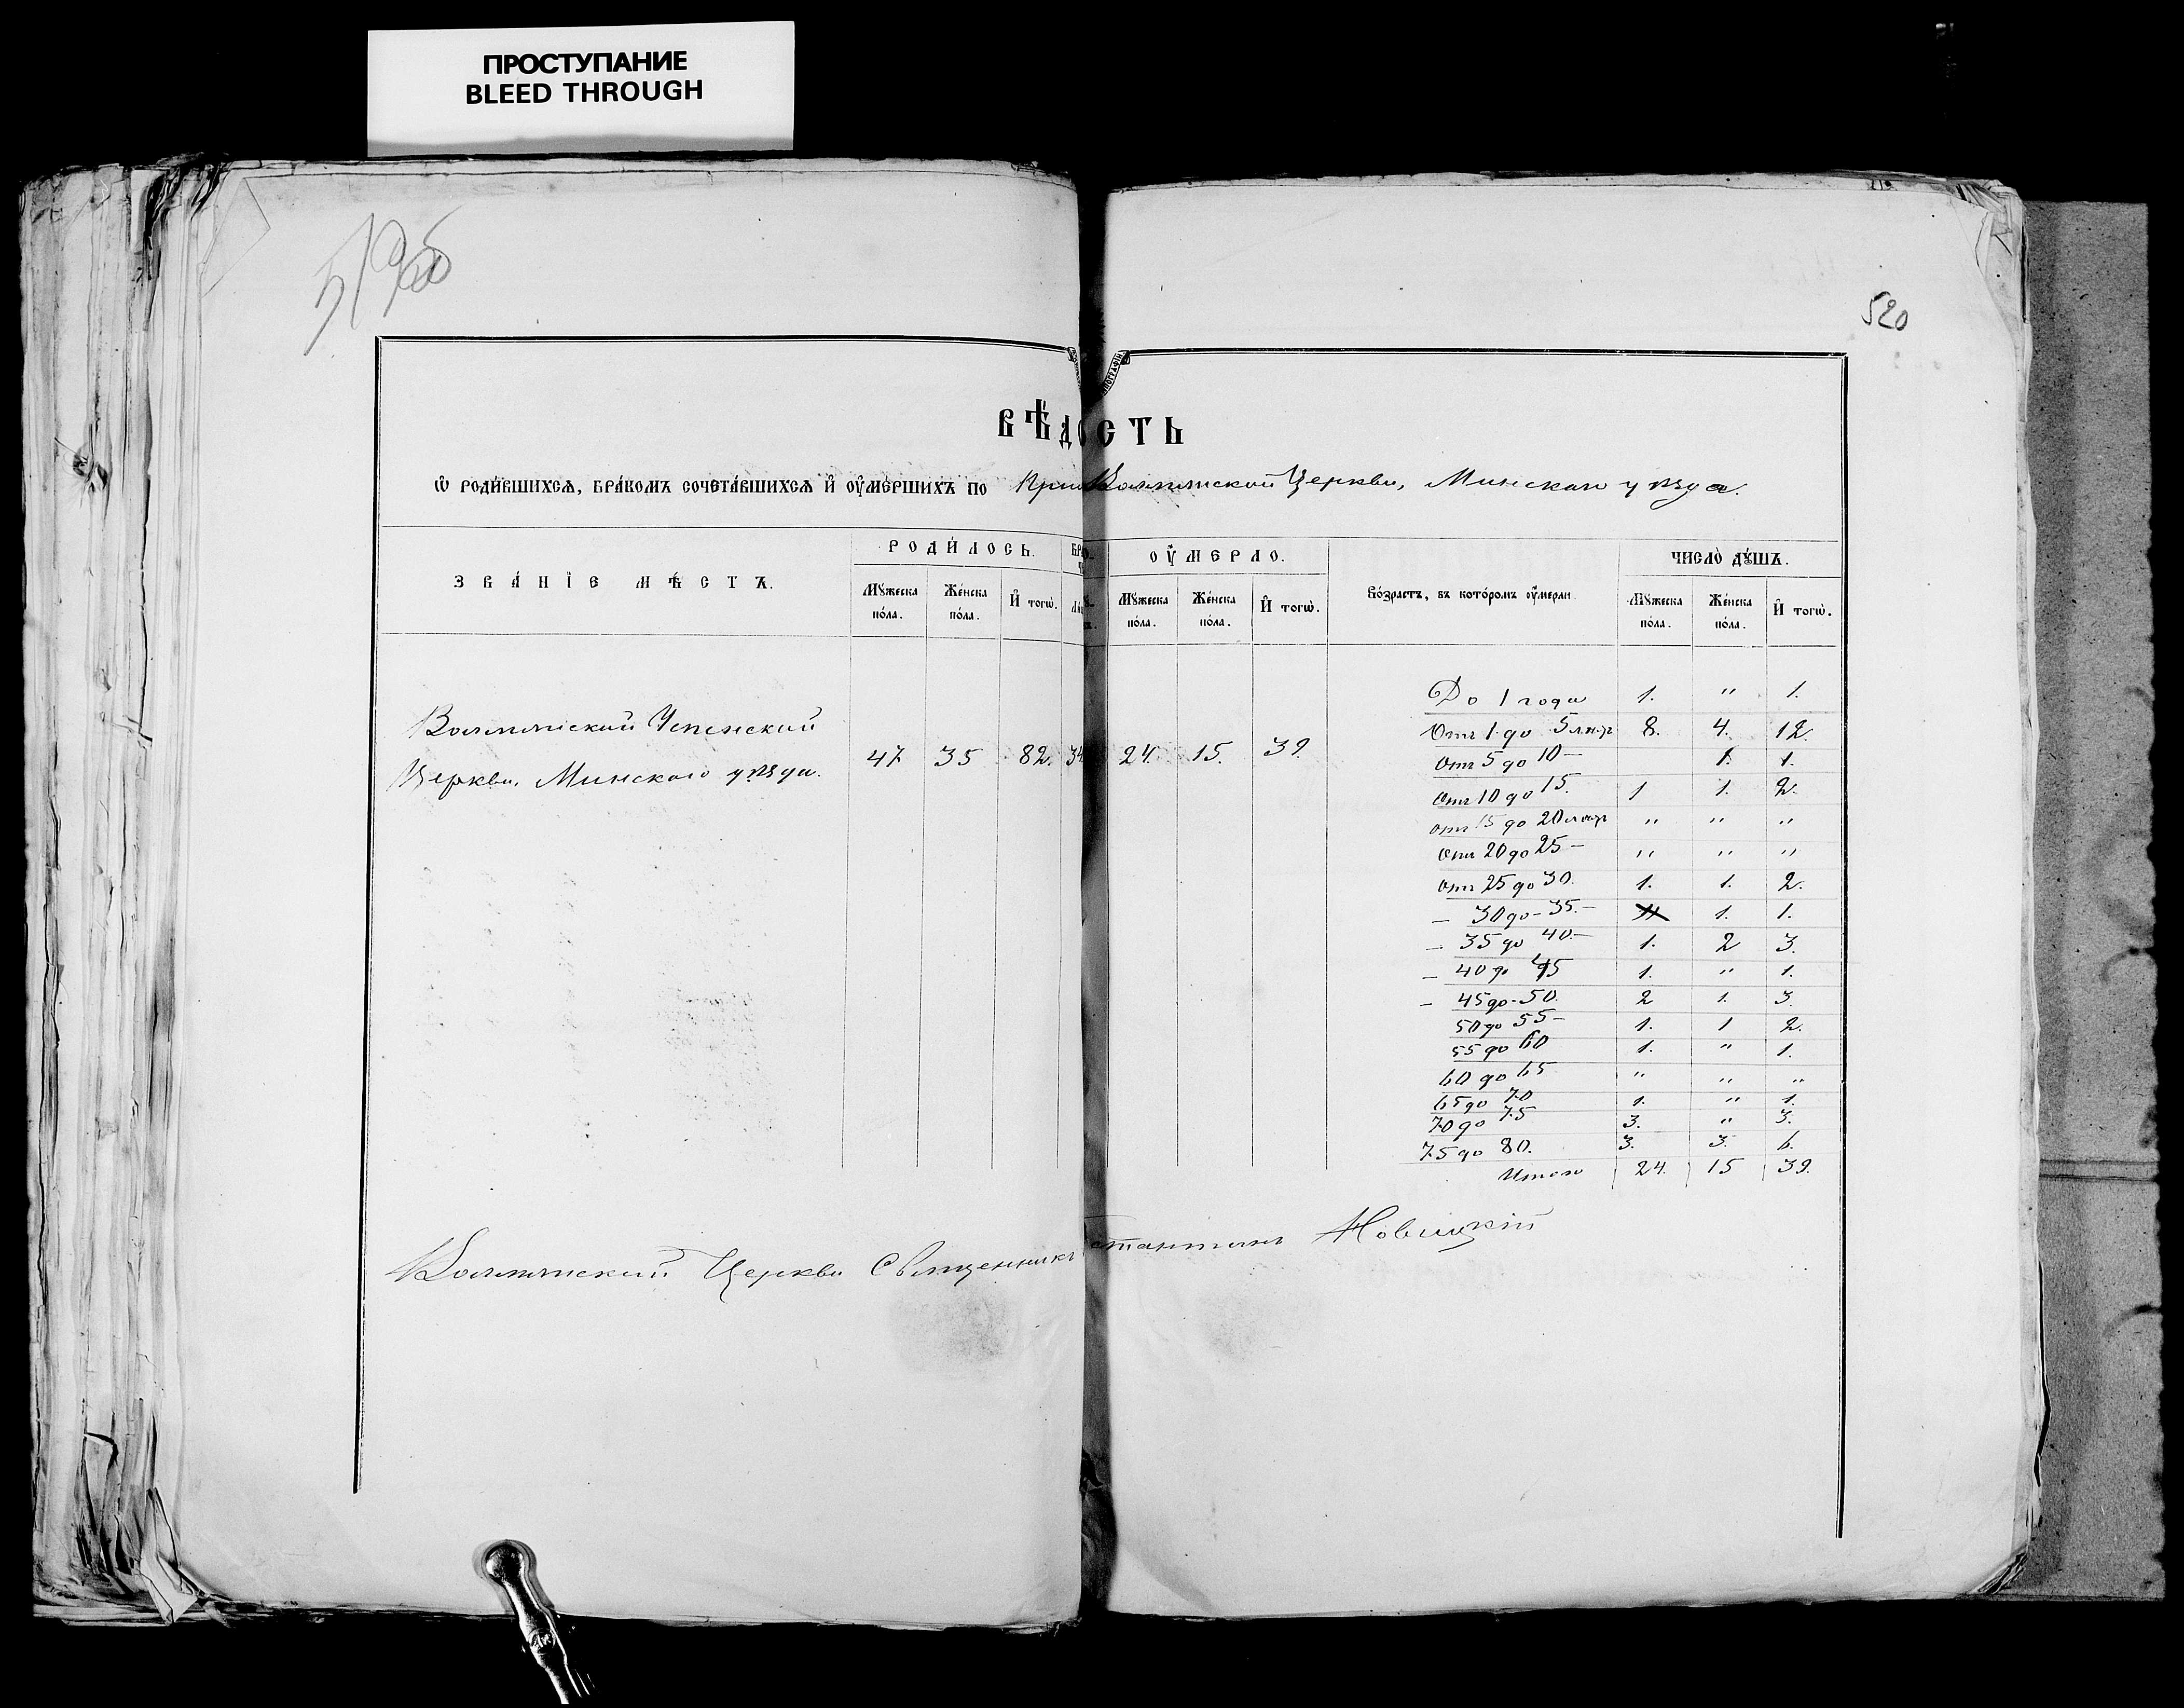 ПРОСТУПАНИЕ
BLEED THROUGH
520
ВѢДОСТЬ
Ѿ РОДИ́ВШИХСѦ, БРА́КОМЪ СОЧЕТА́ВШИХСѦ И҆ ОУ҆МЕ́РШИХЪ ПО Церкви, Минскаго уѣзда.
ЗВА́НІЕ МѢ́СТЪ.
РОДИ́ЛОСЬ.
Мꙋ́жеска по́ла.
Же́нска по́ла.
И҆ тогѡ̀.
ОУ҆́МЕРЛО.
Мꙋ́жеска по́ла.
Же́нска по́ла.
И҆ тогѡ̀.
Во́зрастъ, въ кото́ромъ оу҆́мерли.
ЧИСЛО̀ ДꙊ́ШЪ.
Мꙋ́жеска по́ла.
Же́нска по́ла.
И҆ тогѡ̀.
Успенский
Церкви, Минскаго уѣзда.
47 35 82. 34 24. 15. 39.
До 1 года 1. " 1.
Отъ 1 до 5 лѣтъ 8. 4. 12.
Отъ 5 до 10 – 1. 1.
Отъ 10 до 15. 1 1. 2.
Отъ 15 до 20 лѣтъ " " "
Отъ 20 до 25 – " " "
Отъ 25 до 30. 1. 1. 2.
– 30 до – 35. – 1. 1.
– 35 до 40. – 1. 2 3.
– 40 до 45 1. " 1.
– 45 до – 50. 2 1. 3.
50 до 55 – 1. 1 2.
55 до 60 1. " 1.
60 до 65 " " "
65 до 70 1. " 1.
70 до 75 3. " 3.
75 до 80. 3. 3. 6.
Итого 24. 15 39.
Церкви Священникъ Новицкій